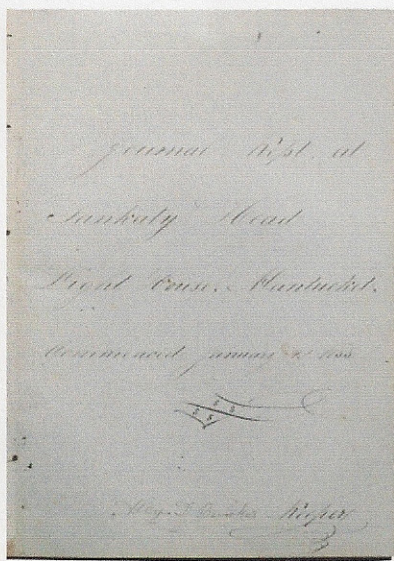 Journal Kept at
Sankaty Head
Light House. Nantucket.
Commenced January
Keeper